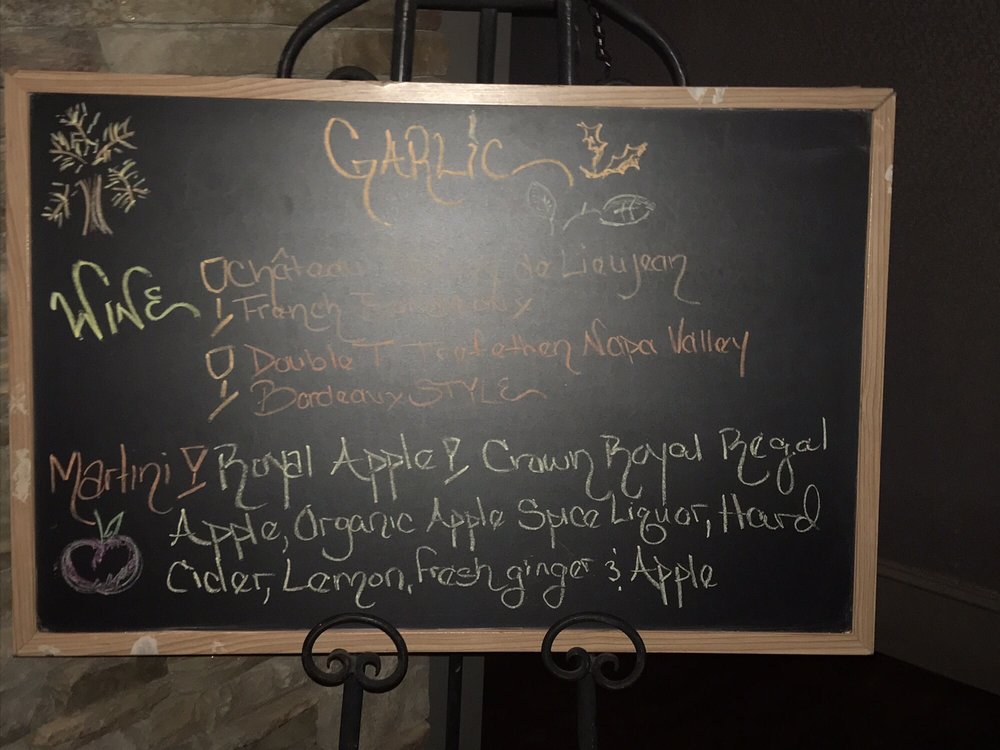 GARLIC
WINE Château de Lieujean
French Bordeaux
Double T Trefethen Napa Valley
Bordeaux STYLE
Martini Royal Apple! Crown Royal Regal
Apple, Organic Apple Spice Liquor, Hard
Cider, Lemon, fresh ginger & Apple